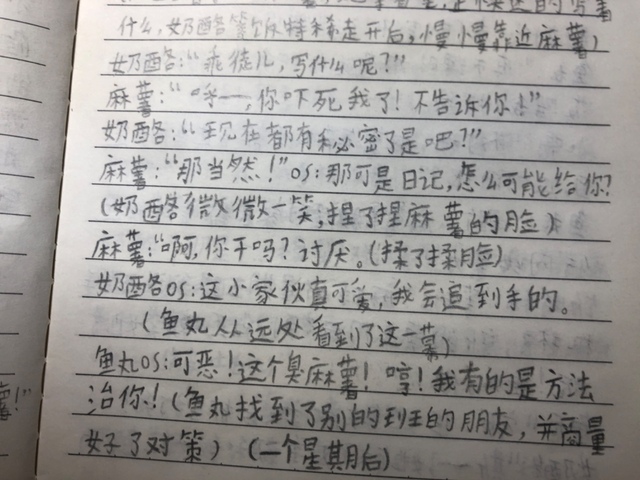 什么,奶酪等饭特稀走开后,慢慢靠近麻薯)
奶酪:“乖徒儿,写什么呢?”
麻薯:“呼——,你吓死我了!不告诉你!”
奶酪:“现在都有秘密了是吧?”
麻薯:“那当然!”OS:那可是日记,怎么可能给你?
(奶酪微微一笑,捏了捏麻薯的脸)
麻薯:“啊,你干吗?讨厌。(揉了揉脸)
奶酪OS:这小家伙真可爱,我会追到手的。
(鱼丸从远处看到了这一幕)
鱼丸OS:可恶!这个臭麻薯!哼!我有的是方法
治你!(鱼丸找到了别的班的朋友,并商量
好了对策)(一个星期后)
薯!”